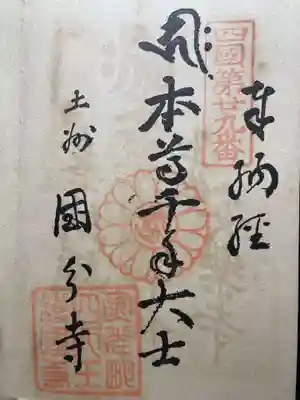 奉納経
四國第廿九番
本尊千手大士
土州
國分寺